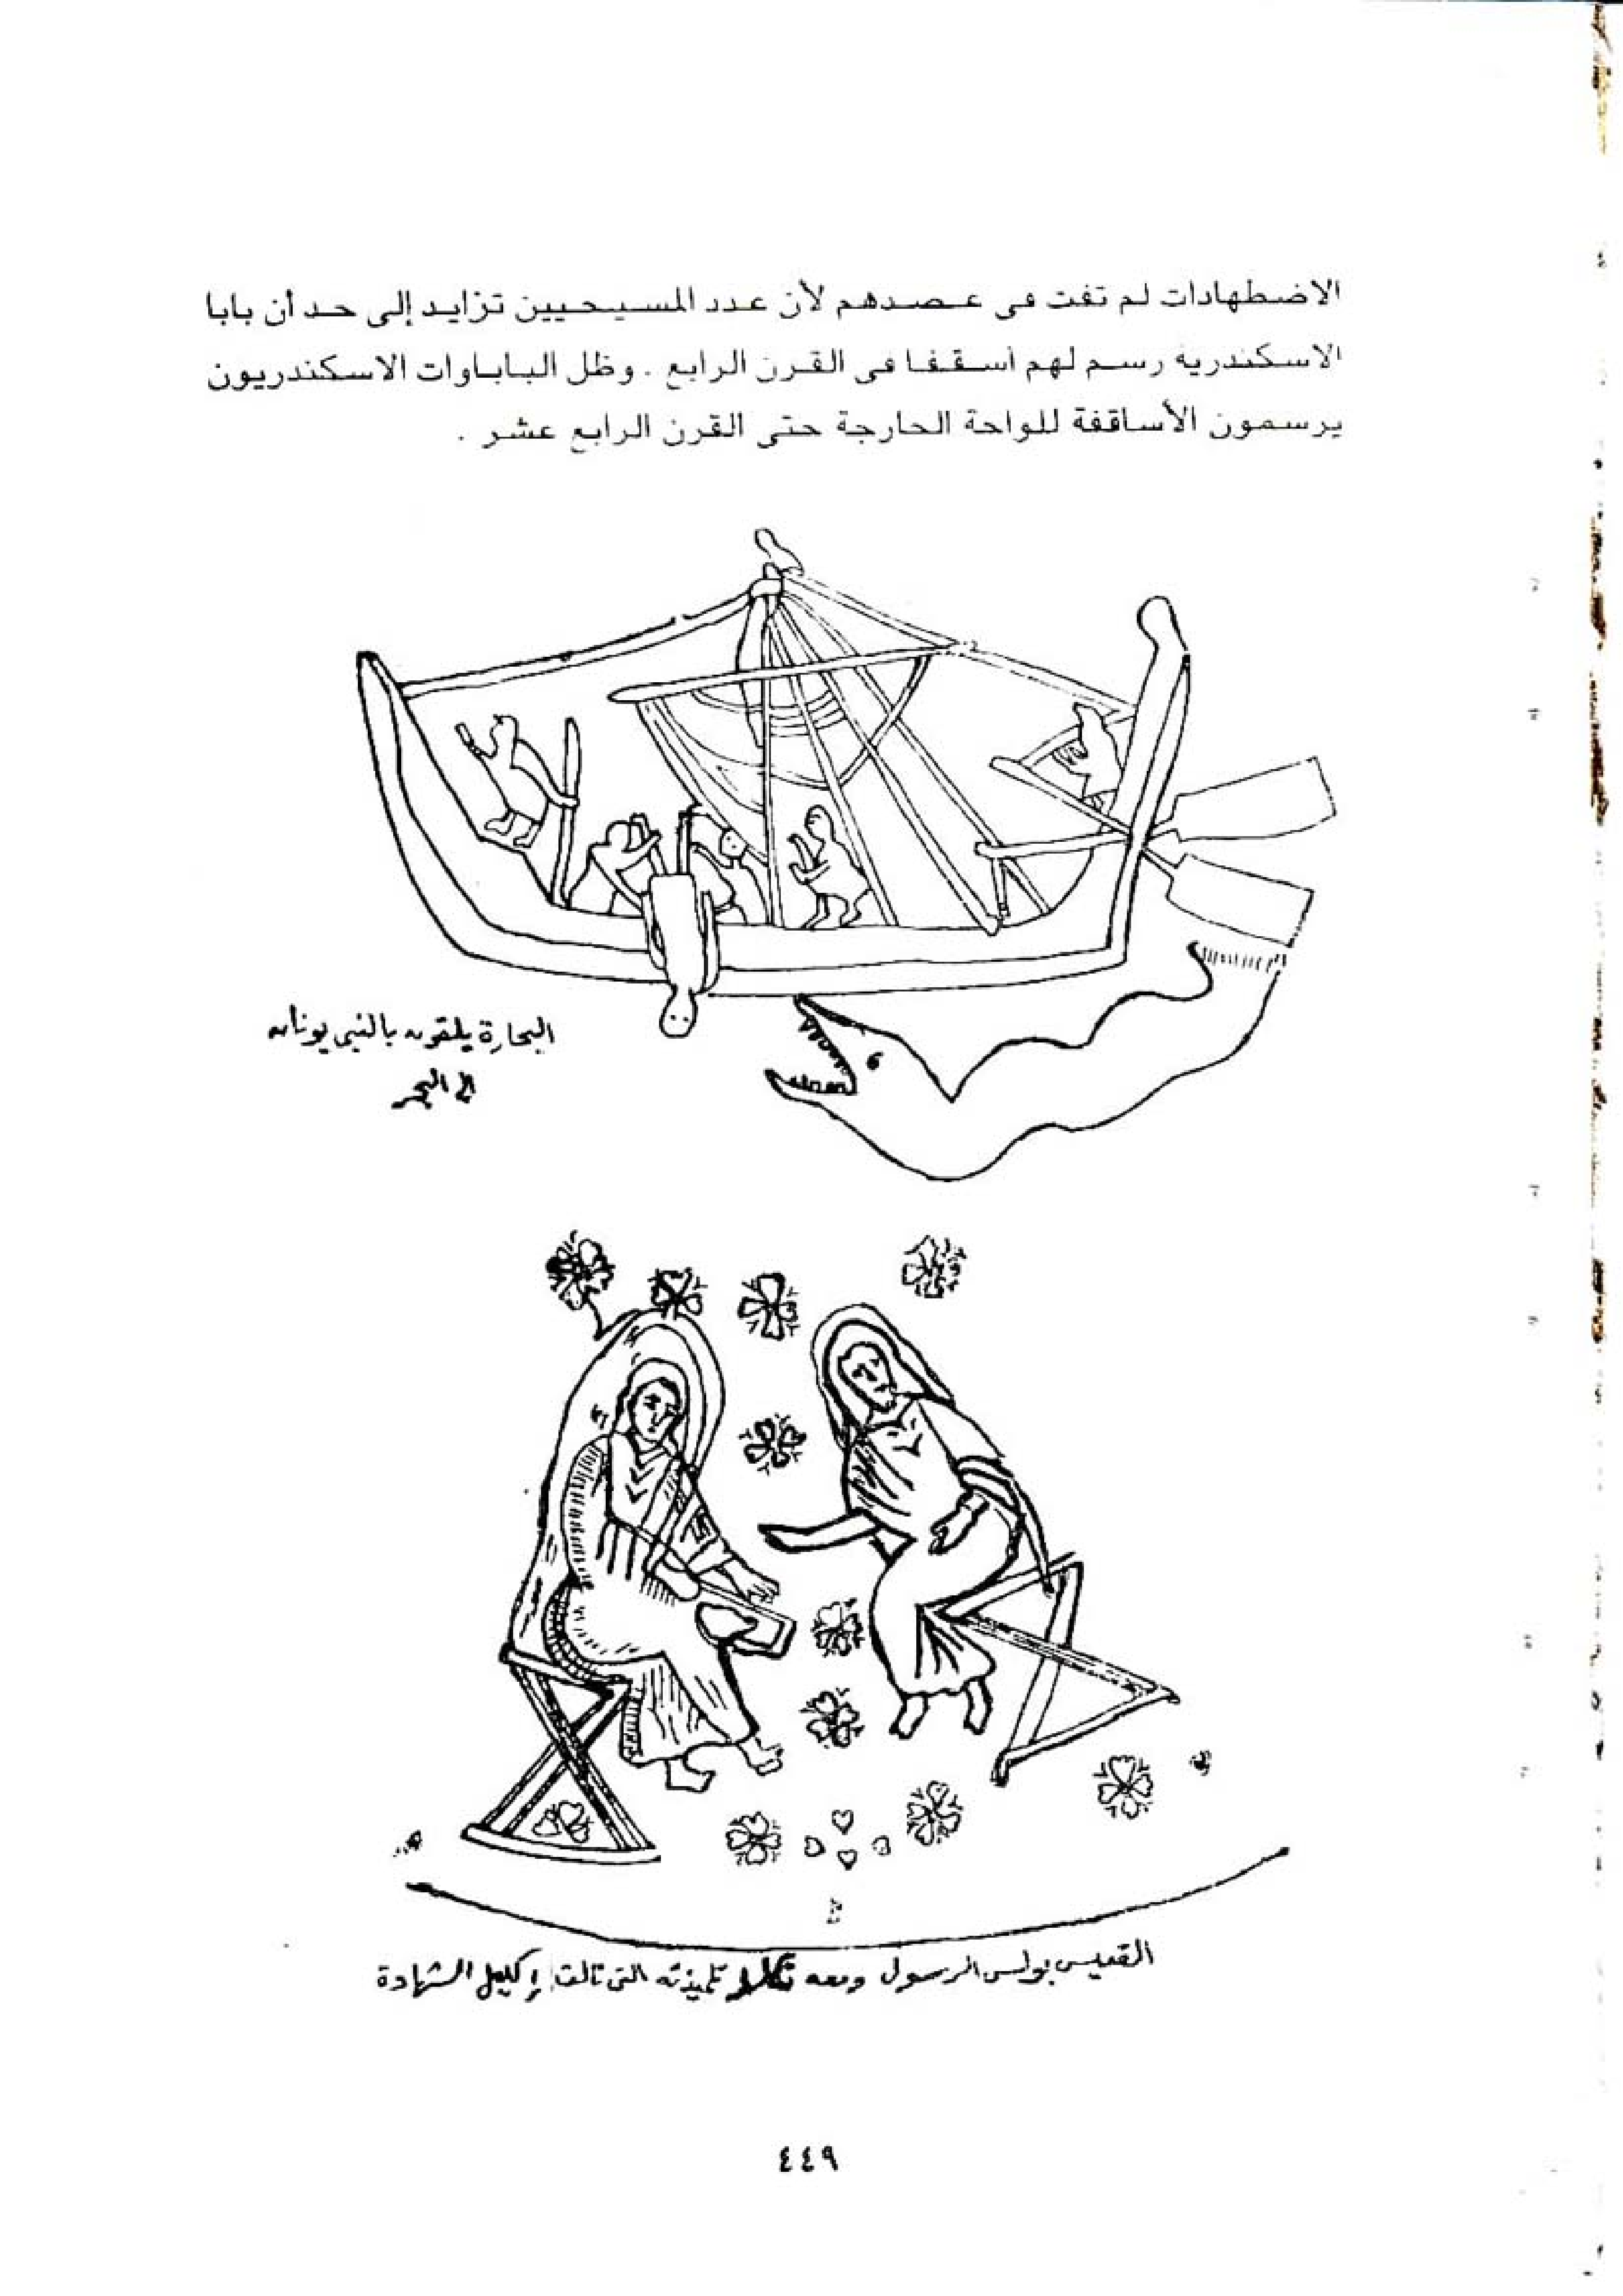 الاضطهادات لم تفت فى عضدهم لأن عدد المسيحيين تزايد إلى حد أن بابا
الاسكندرية رسم لهم أسقفا فى القرن الرابع . وظل الباباوات الاسكندريون
يرسمون الأساقفة للواحة الخارجة حتى القرن الرابع عشر .
البحارة يلقون بالنبى يونان
إلى البحر
القديس بولس الرسول ومعه تكلا تلميذته التى نالت إكليل الشهادة
٤٤٩